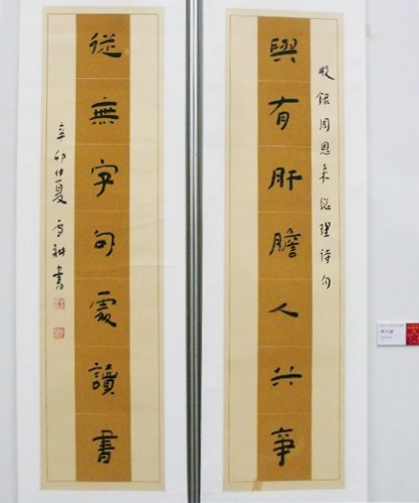 敬錄周恩来總理詩句
與有肝膽人共事
從無字句處讀書
辛卯仲夏雪耕書